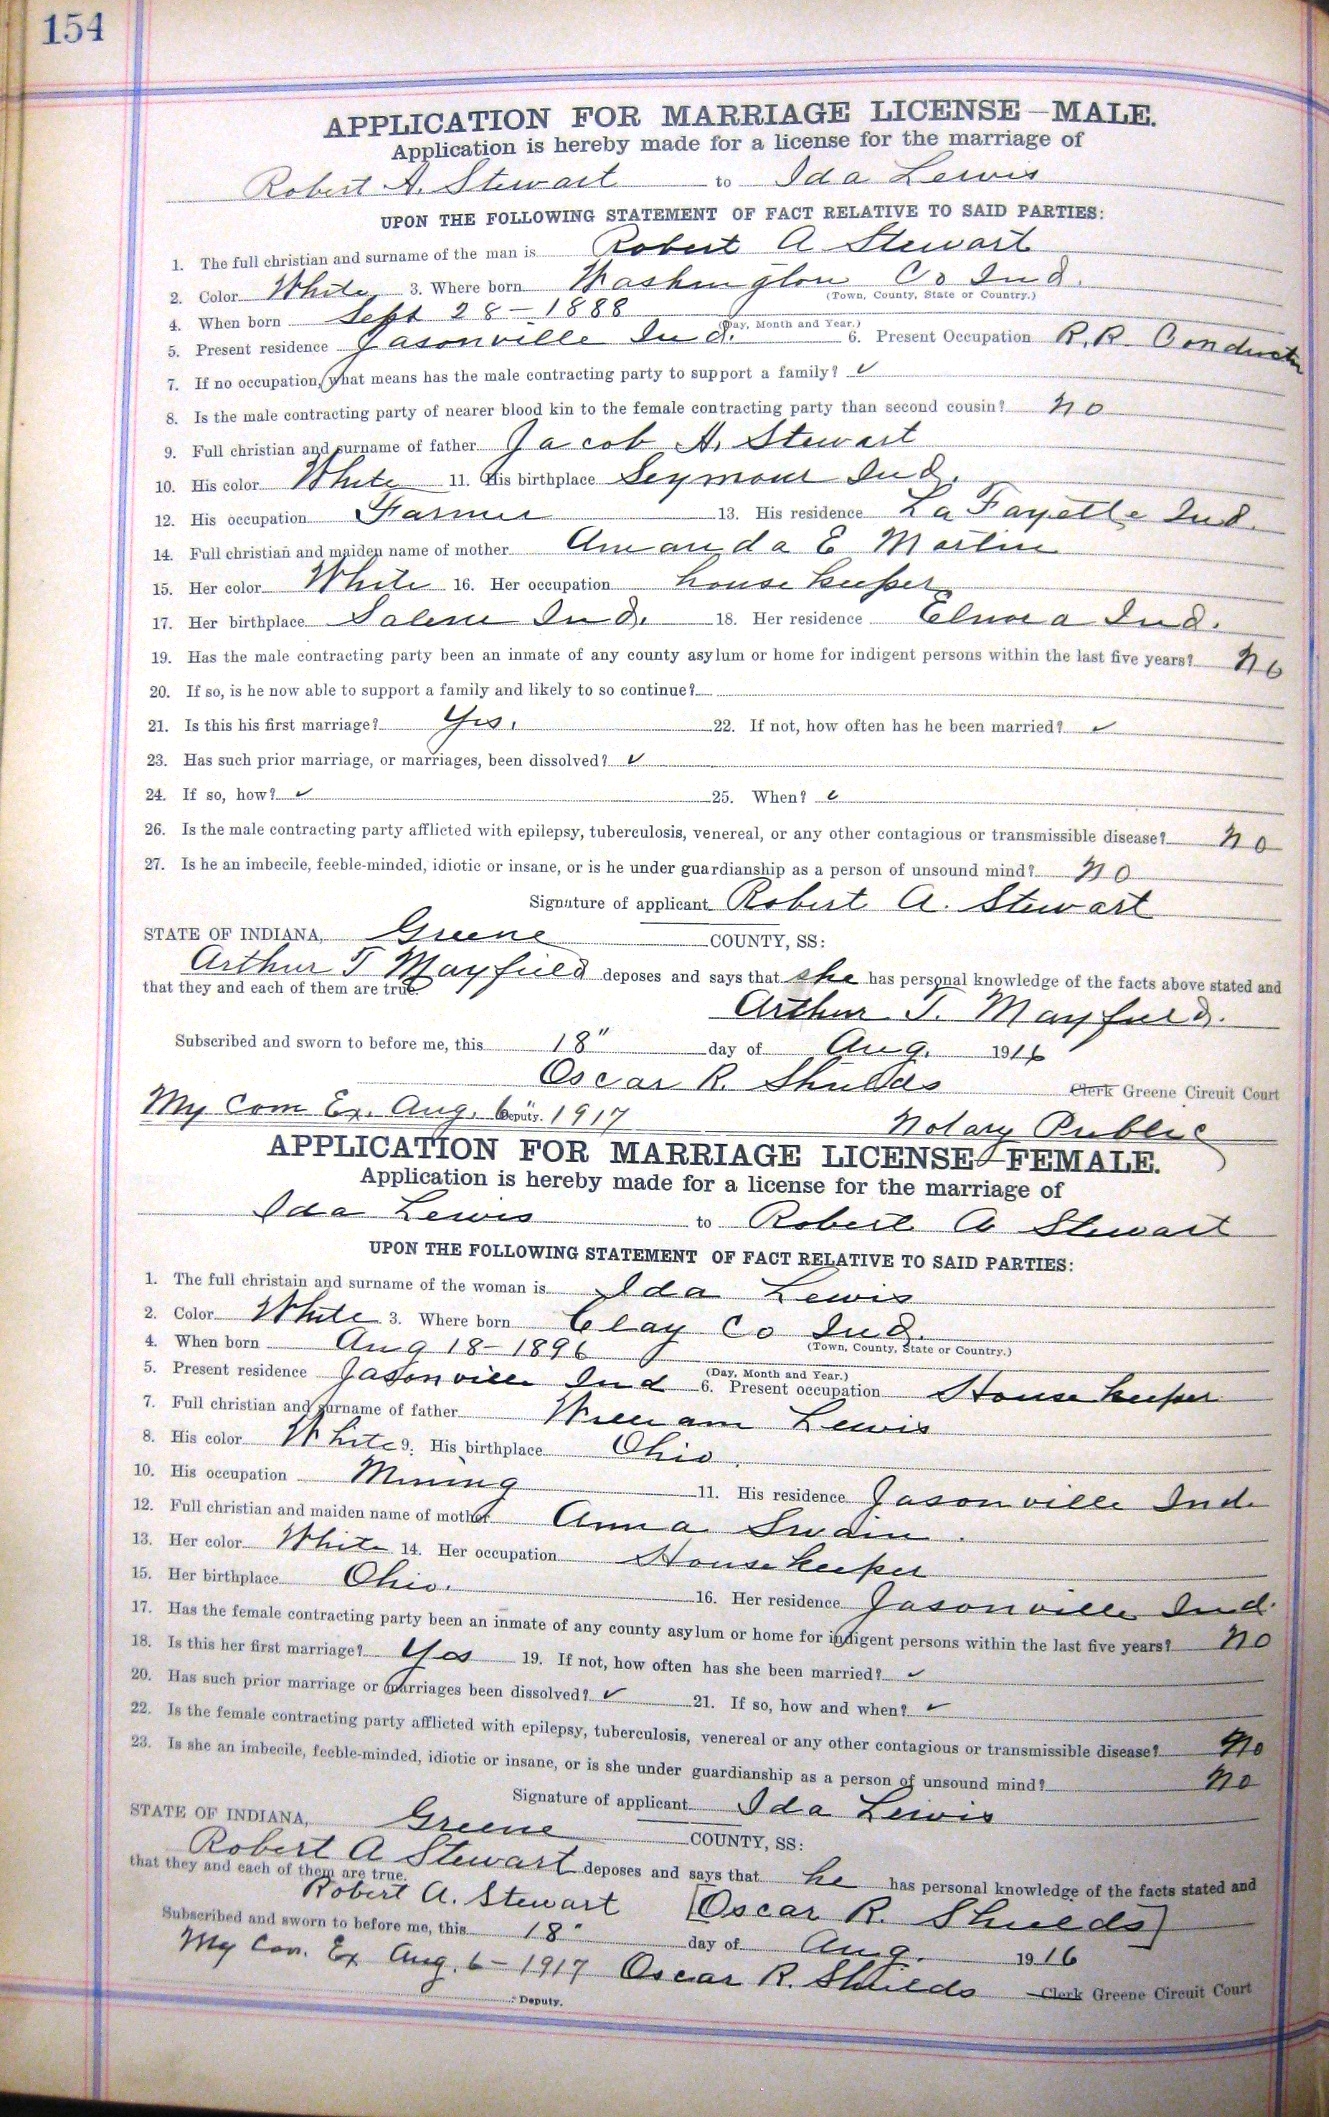 154
APPLICATION FOR MARRIAGE LICENSE—MALE.
Application is hereby made for a license for the marriage of
Robert A. Stewart to Ida Lewis
UPON THE FOLLOWING STATEMENT OF FACT RELATIVE TO SAID PARTIES:
1. The full christian and surname of the man is Robert A Stewart
2. Color White 3. Where born Washington Co Ind.
(Town, County, State or Country.)
4. When born Sept 28-1888
(Day, Month and Year.)
5. Present residence Jasonville Ind. 6. Present Occupation R.R. Conductor
7. If no occupation, what means has the male contracting party to support a family? ✓
8. Is the male contracting party of nearer blood kin to the female contracting party than second cousin? no
9. Full christian and surname of father Jacob A. Stewart
10. His color White 11. His birthplace Seymour Ind.
12. His occupation Farmer 13. His residence La Fayette Ind.
14. Full christian and maiden name of mother Amanda E Martin
15. Her color White 16. Her occupation house keeper
17. Her birthplace Salem Ind. 18. Her residence Elnora Ind.
19. Has the male contracting party been an inmate of any county asylum or home for indigent persons within the last five years? No
20. If so, is he now able to support a family and likely to so continue?
21. Is this his first marriage? Yes. 22. If not, how often has he been married? ✓
23. Has such prior marriage, or marriages, been dissolved? ✓
24. If so, how? ✓ 25. When? ✓
26. Is the male contracting party afflicted with epilepsy, tuberculosis, venereal, or any other contagious or transmissible disease? no
27. Is he an imbecile, feeble-minded, idiotic or insane, or is he under guardianship as a person of unsound mind? no
Signature of applicant Robert A. Stewart
STATE OF INDIANA, Greene COUNTY, SS:
Arthur T Mayfield deposes and says that she has personal knowledge of the facts above stated and
that they and each of them are true.
Arthur T. Mayfield.
Subscribed and sworn to before me, this 18" day of Aug. 1916
Oscar R. Shields Clerk Greene Circuit Court
My Com Ex. Aug. 6" 1917 Deputy. Notary Public
APPLICATION FOR MARRIAGE LICENSE—FEMALE.
Application is hereby made for a license for the marriage of
Ida Lewis to Robert A Stewart
UPON THE FOLLOWING STATEMENT OF FACT RELATIVE TO SAID PARTIES:
1. The full christain and surname of the woman is Ida Lewis
2. Color White 3. Where born Clay Co Ind.
(Town, County, State or Country.)
4. When born Aug 18-1896
(Day, Month and Year.)
5. Present residence Jasonville Ind 6. Present occupation House keeper
7. Full christian and surname of father William Lewis
8. His color White 9. His birthplace Ohio.
10. His occupation Mining 11. His residence Jasonville Ind.
12. Full christian and maiden name of mother Anna Swain.
13. Her color White 14. Her occupation House keeper
15. Her birthplace Ohio. 16. Her residence Jasonville Ind.
17. Has the female contracting party been an inmate of any county asylum or home for indigent persons within the last five years? no
18. Is this her first marriage? Yes 19. If not, how often has she been married? ✓
20. Has such prior marriage or marriages been dissolved? ✓ 21. If so, how and when? ✓
22. Is the female contracting party afflicted with epilepsy, tuberculosis, venereal or any other contagious or transmissible disease? No
23. Is she an imbecile, feeble-minded, idiotic or insane, or is she under guardianship as a person of unsound mind? No
Signature of applicant Ida Lewis
STATE OF INDIANA, Greene COUNTY, SS:
Robert A Stewart deposes and says that he has personal knowledge of the facts stated and
that they and each of them are true.
Robert A. Stewart [Oscar R. Shields]
Subscribed and sworn to before me, this 18" day of Aug. 1916
My Con. Ex Aug. 6-1917 Oscar R. Shields Clerk Greene Circuit Court
Deputy.